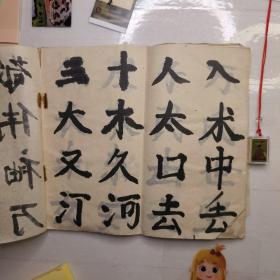 入术中丢
人太口去
十木久河
三大又汀